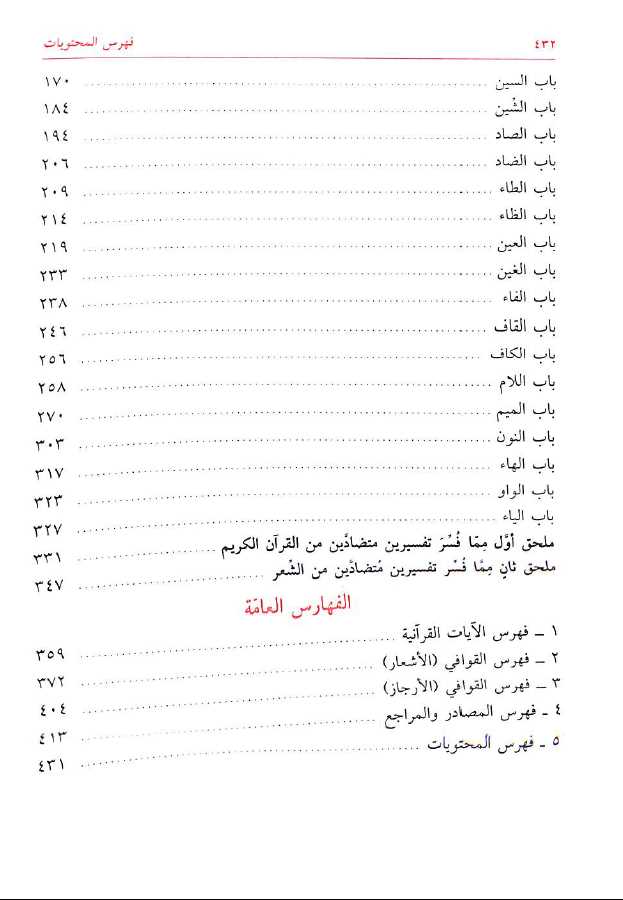 ٤٣٢ فهرس المحتويات
باب السين ١٧٠
باب الشّين ١٨٤
باب الصاد ١٩٤
باب الضاد ٢٠٦
باب الطاء ٢٠٩
باب الظاء ٢١٤
باب العين ٢١٩
باب الغين ٢٣٣
باب الفاء ٢٣٨
باب القاف ٢٤٦
باب الكاف ٢٥٦
باب اللام ٢٥٨
باب الميم ٢٧٠
باب النون ٣٠٣
باب الهاء ٣١٧
باب الواو ٣٢٣
باب الياء ٣٢٧
ملحق أوَّل مِمّا فُسِّرَ تفسيرين متضادَّين من القرآن الكريم ٣٣١
ملحق ثانٍ مِمَّا فُسِّر تفسيرين مُتضادَّين من الشِّعر ٣٤٧
الفهارس العامّة
١ ـ فهرس الآيات القرآنية ٣٥٩
٢ ـ فهرس القوافي (الأشعار) ٣٧٢
٣ ـ فهرس القوافي (الأرجاز) ٤٠٤
٤ ـ فهرس المصادر والمراجع ٤١٣
٥ ـ فهرس المحتويات ٤٣١